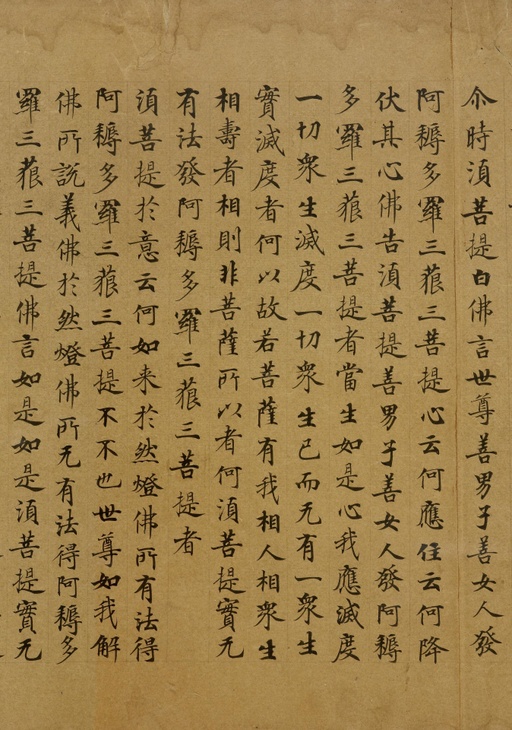 尒時湏菩提白佛言世尊善男子善女人發
阿耨多羅三藐三菩提心云何應住云何降
伏其心佛告湏菩提善男子善女人發阿耨
多羅三藐三菩提者當生如是心我應滅度
一切衆生滅度一切衆生已而无有一衆生
實滅度者何以故若菩薩有我相人相衆生
相壽者相則非菩薩所以者何湏菩提實无
有法發阿耨多羅三藐三菩提者
湏菩提於意云何如来於然燈佛所有法得
阿耨多羅三藐三菩提不不也世尊如我解
佛所說義佛於然燈佛所无有法得阿耨多
羅三藐三菩提佛言如是如是湏菩提實无